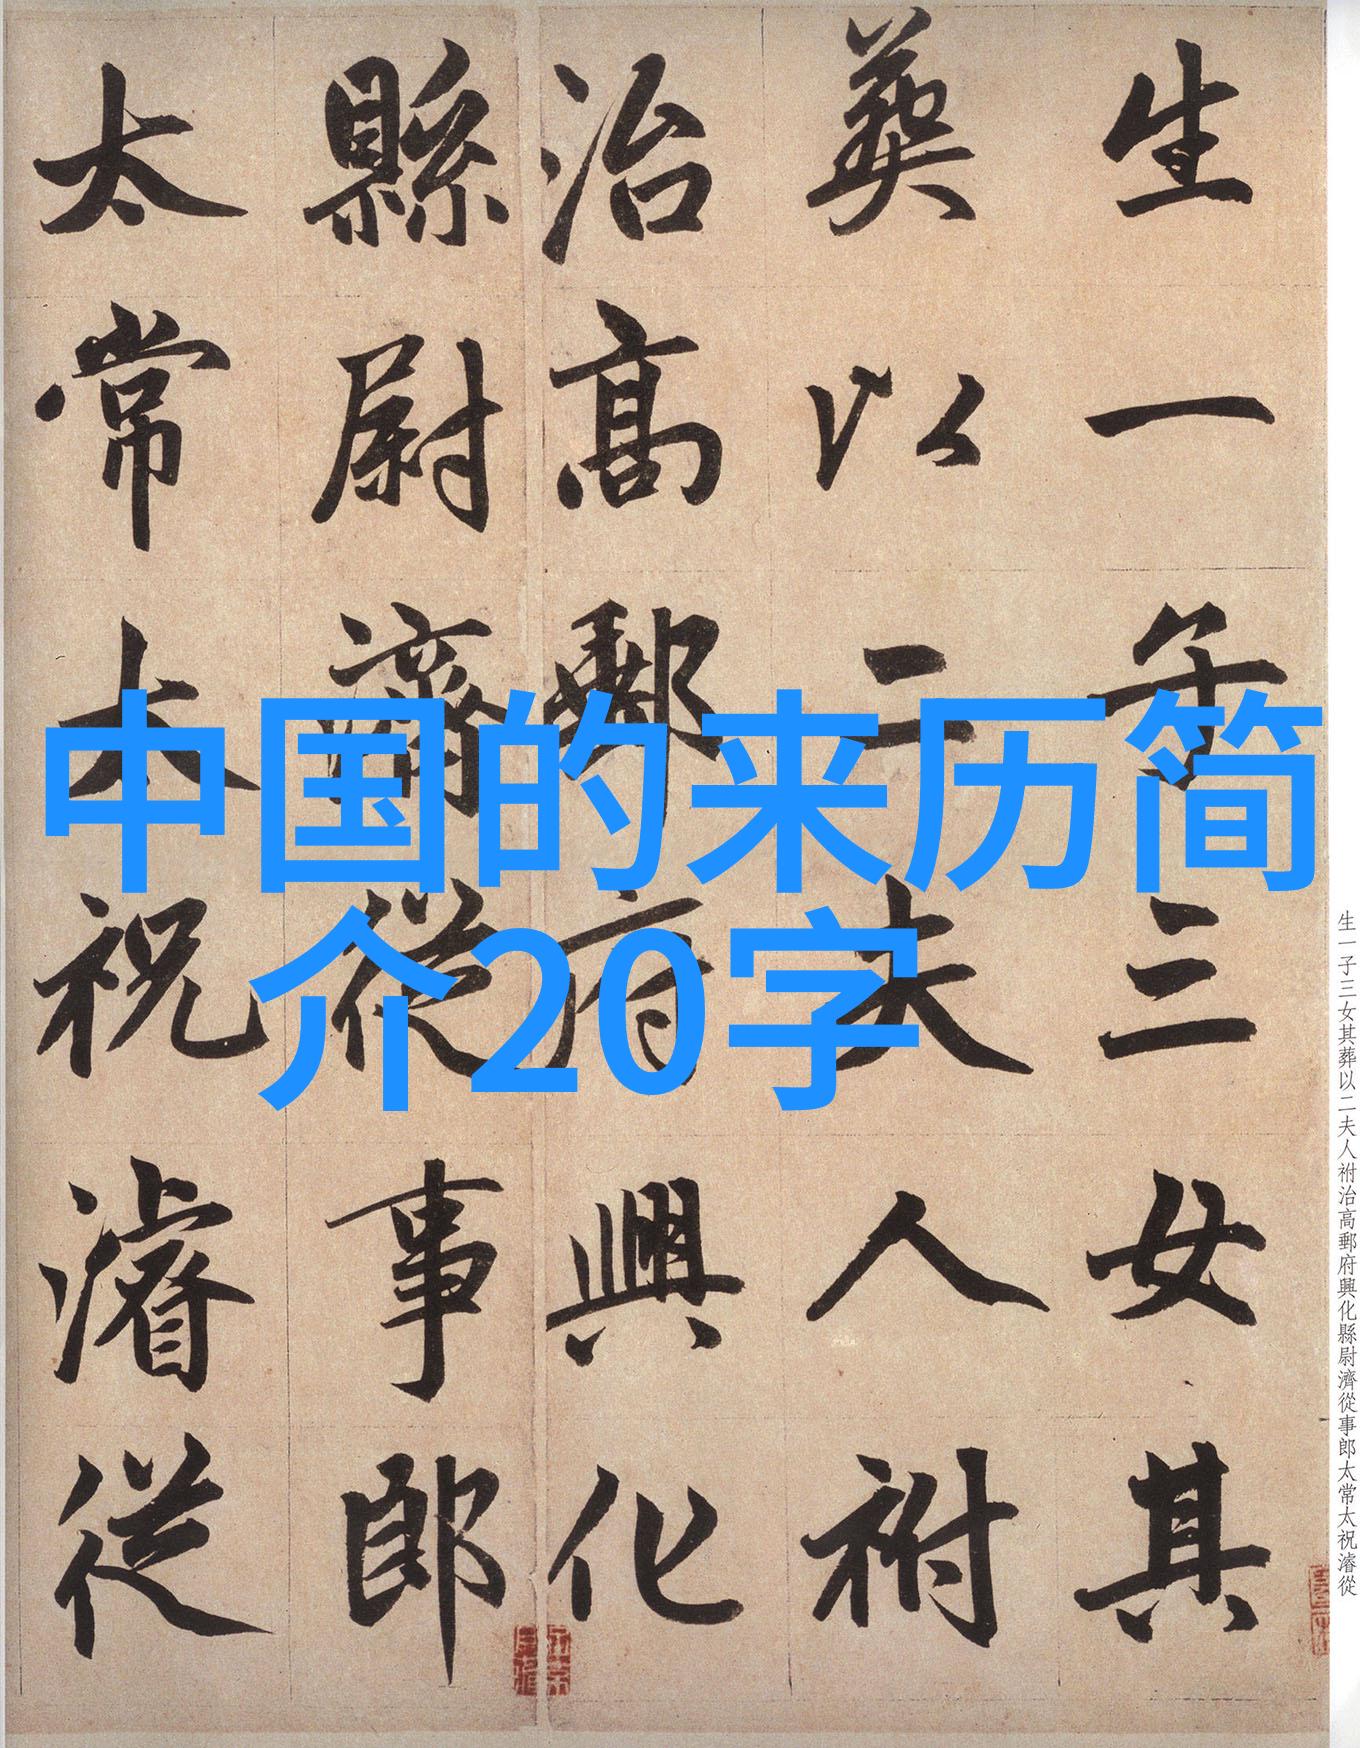 中国的来历简
介20字
生一子三女其
葬以二夫人祔
治高郵府興化
縣尉濟從事郎
太常太祝濬從
生一子三女其葬以二夫人祔治高郵府興化縣尉濟從事郎太常太祝濬從